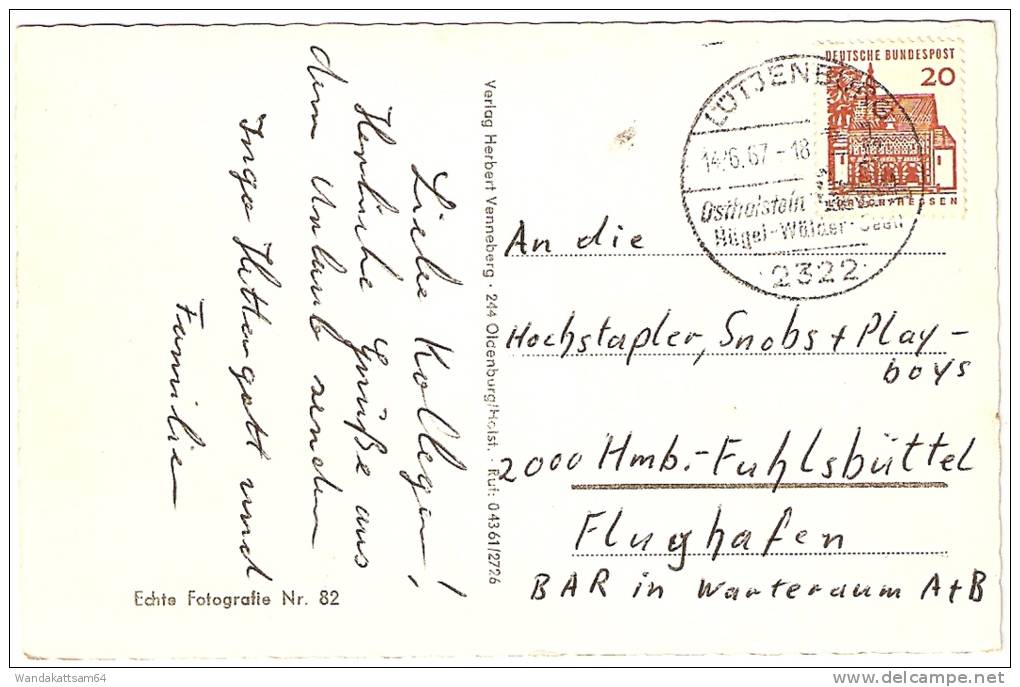 Liebe Kollegen!
Herzliche Grüße aus
dem Urlaub senden
Inge Hüttergott und
Familie
Echte Fotografie Nr. 82
Verlag Herbert Venneberg · 244 Oldenburg/Holst. · Ruf: 04361/2726
DEUTSCHE BUNDESPOST
20
LÜTJENBURG
14.6.67-18
Ostholstein
Hügel-Wälder-Seen
2322
An die
Hochstapler, Snobs + Play-
boys
2000 Hmb.-Fuhlsbüttel
Flughafen
BAR in Warteraum A+B
Wandakattsam64
www.delcampe.net